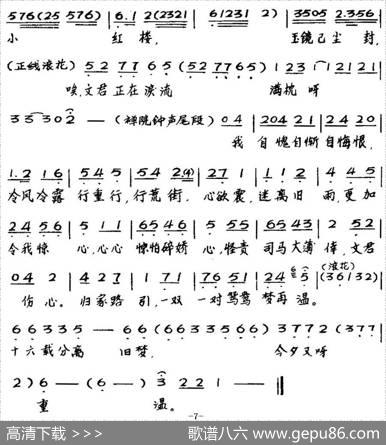 576(25 576) 6.1 2(2321 61231 2) 3505 2.356
小 红 楼, 玉镜已尘 封,
(正线浪花) 52 7765 (527765) 123 121121
唉,文君正在泪流 满枕 呀
335302 — (禅院钟声尾段) 04 204 21 24 20
我 自愧自惭自悔恨,
1.2 16 545 54 2(4) 27 1 112 445
冷风冷露 行重行,行荒街, 心欲震,迷离旧 雨,更加
2456 511 6546 555 6543 252
令我惊 心,心心 惊怕碎娇 心,怪责 司马太薄 倖,文君
042 427 171 7651 24 5 (36132)
伤 心。 归家路 引,一双 一对鸳鸯 梦再温。 (浪花)
66335 — 66 (6633566) 3772 (377
十六载分离 旧梦, 今夕又呀
2) 6 — (6 —) 3 221 — ‖
重 温。
-7-
高清下载 >>> 歌谱八六 www.gepu86.com